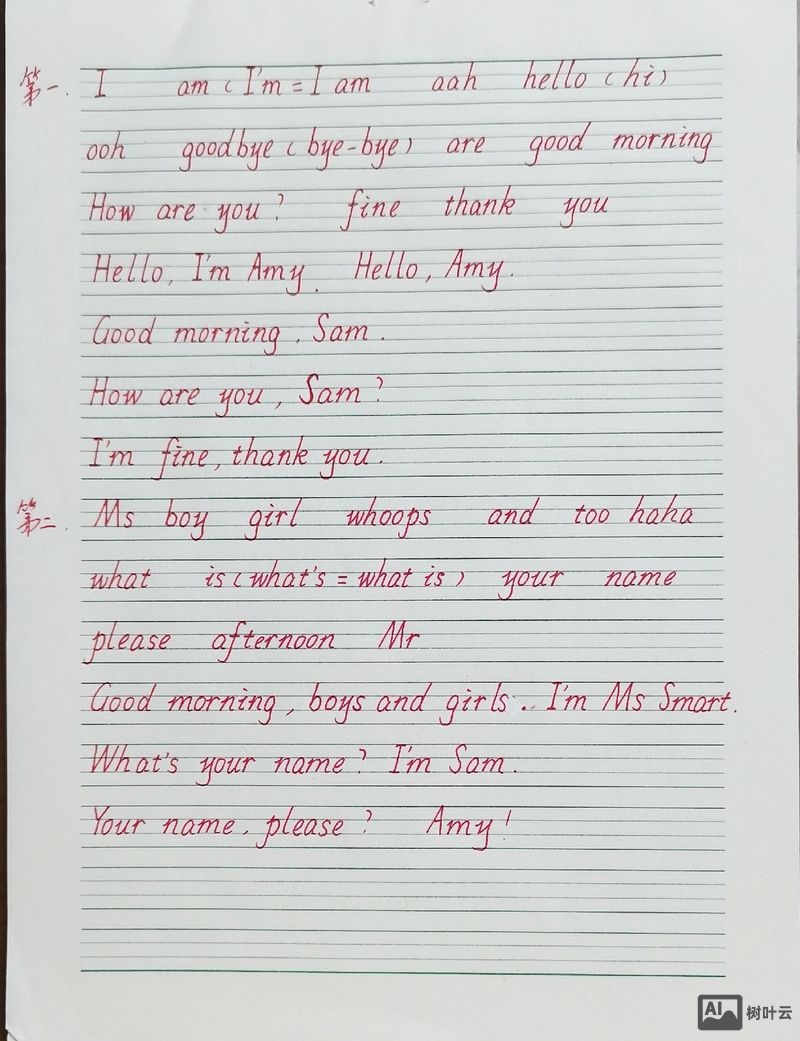 第一. I am (I'm = I am aah hello (hi)
ooh goodbye (bye-bye) are good morning
How are you? fine thank you
Hello, I'm Amy. Hello, Amy.
Good morning, Sam.
How are you, Sam?
I'm fine, thank you.
第二. Ms boy girl whoops and too haha
what is (what's = what is) your name
please afternoon Mr
Good morning, boys and girls.. I'm Ms Smart.
What's your name? I'm Sam.
Your name, please? Amy!
AI 树叶云